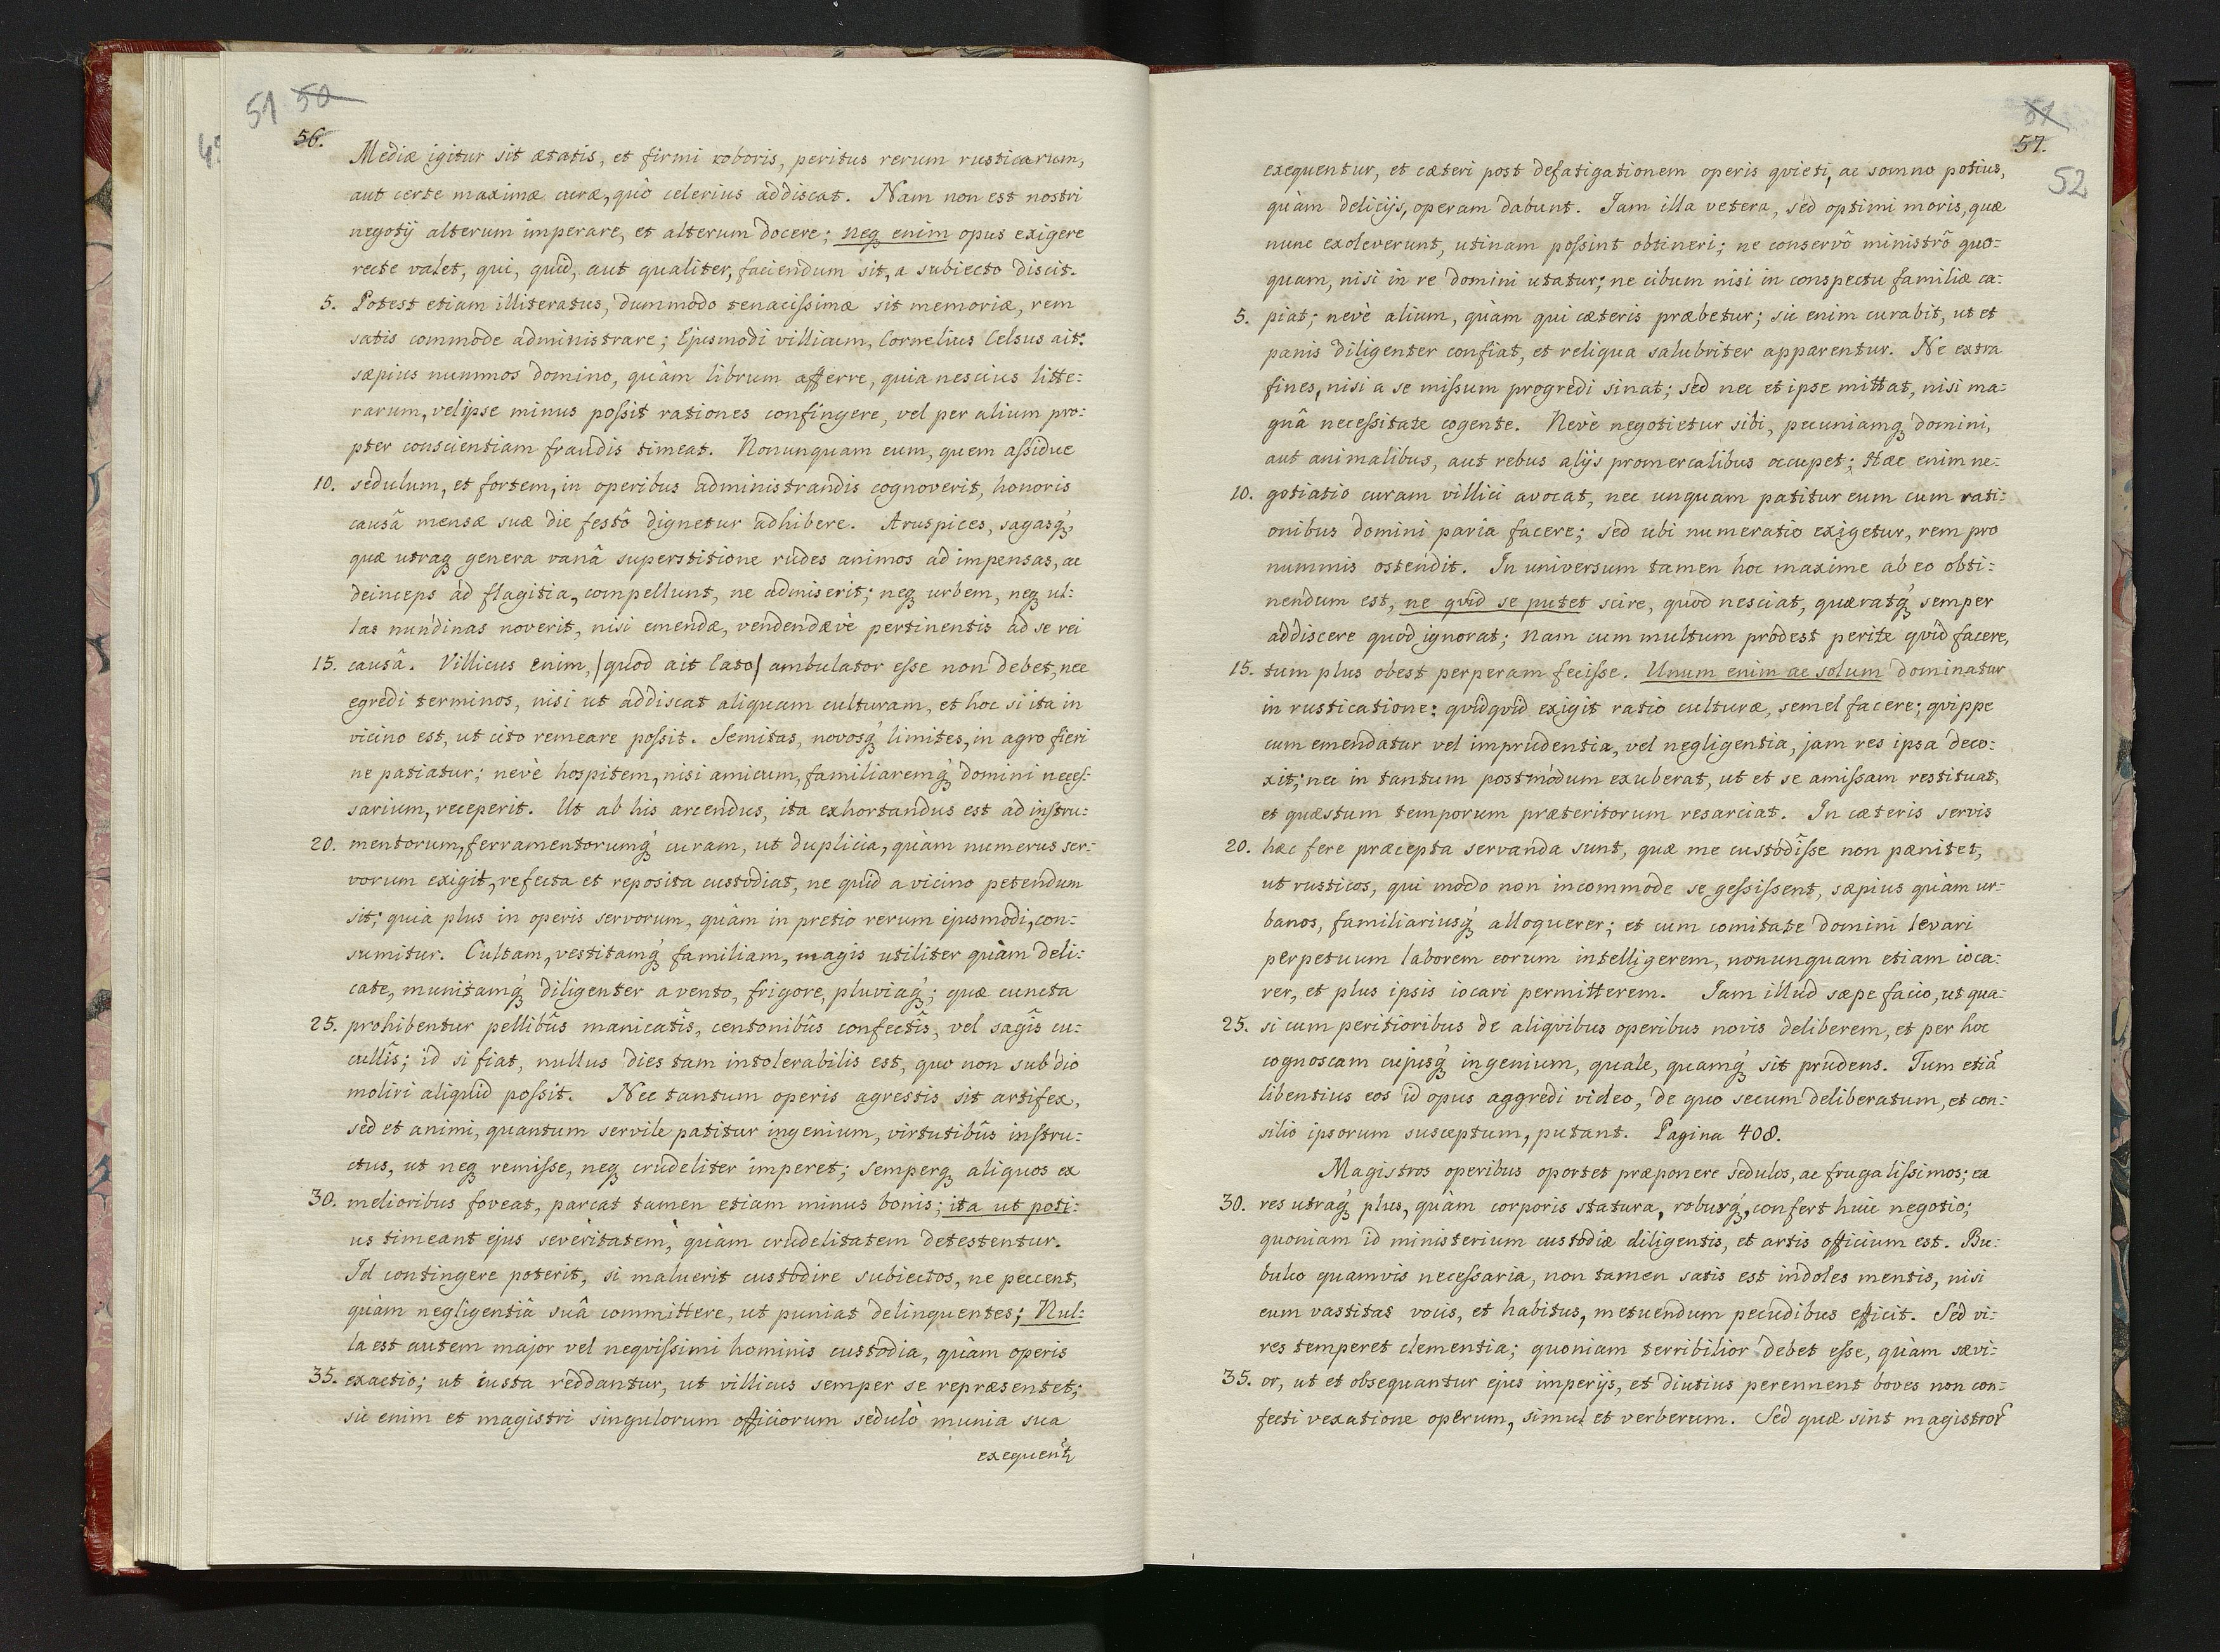 51 50
56.
Mediæ igitur sit ætatis, et firmi roboris, peritus rerum rusticarum,
aut certe maximæ curæ, quò celerius addiscat. Nam non est nostri
negotij alterum imperare, et alterum docere; neq₃ enim opus exigere
recte valet, qui, quid, aut qualiter, faciendum sit, a subiecto discit.
5. Potest etiam illiteratus, dummodo tenacißimæ sit memoriæ, rem
satis commode administrare; Ejusmodi villicum, Cornelius Celsus ait:
sæpius nummos domino, quàm librum afferre, quia nescius litte:
rarum, vel ipse minus poßit rationes confingere, vel per alium pro:
pter conscientiam fraudis timeat. Nonunquam eum, quem aßidue
10. sedulum, et fortem, in operibus administrandis cognoverit, honoris
causâ mensæ suæ die festô dignetur adhibere. Aruspices, sagasq₃́
quæ utraq₃ genera vanâ superstitione rudes animos ad impensas, ac
deinceps ad flagitia, compellunt, ne admiserit; neq₃ urbem, neq₃ ul:
las nundinas noverit, nisi emendæ, vendendævè pertinentis ad se rei
15. causâ. Villicus enim, /quod ait Cato/ ambulator eße non debet, nec
egredi terminos, nisi ut addiscat aliquam culturam, et hoc si ita in
vicino est, ut cito remeare poßit. Semitas, novosq₃́ limites, in agro fieri
ne patiatur; nevè hospitem, nisi amicum, familiaremq₃́ domini neces:
sarium, receperit. Ut ab his arcendus, ita exhortandus est ad instru:
20. mentorum, ferramentorumq₃́ curam, ut duplicia, quàm numerus ser:
vorum exigit, refecta et reposita custodiat, ne quid a vicino petendum
sit; quia plus in operis servorum, quàm in pretio rerum ejusmodi, con:
sumitur. Cultam, vestitamq₃́ familiam, magis utiliter quàm deli:
cate, munitamq₃́ diligenter a vento, frigore, pluviaq₃́; quæ cuncta
25. prohibentur pellibûs manicatîs, centonibûs confectîs, vel sagîs cu:
cullîs; id si fiat, nullus dies tam intolerabilis est, quo non sub dio
moliri aliquid poßit. Nec tantum operis agrestis sit artifex,
sed et animi, quantum servile patitur ingenium, virtutibûs instru:
ctus, ut neq₃ remiße, neq₃ crudeliter imperet; semperq₃ aliquos ex
30. melioribus foveat, parcat tamen etiam minus bonis; ita ut poti:
us timeant ejus severitatem, quàm crudelitatem detestentur.
Id contingere poterit, si maluerit custodire subiectos, ne peccent,
quàm negligentiâ suâ committere, ut puniat delinquentes; Nul:
la est autem major vel neqvißimi hominis custodia, quàm operis
35. exactio; ut iusta reddantur, ut villicus semper se repræsentet;
sic enim et magistri singulorum officiorum sedulò munia sua
exequent

51
57.
52
exequentur, et cæteri post defatigationem operis qvieti, ac somno potius,
quàm delicijs, operam dabunt. Iam illa vetera, sed optimi moris, quæ
nunc exoleverunt, utinam poßint obtineri; ne conservô ministrô quo:
quam, nisi in re domini utatur; ne cibum nisi in conspectu familiæ ca:
5. piat; nevè alium, quàm qui cæteris præbetur; sic enim curabit, ut et
panis diligenter confiat, et reliqua salubriter apparentur. Ne extra
fines, nisi a se mißum progredi sinat; sed nec et ipse mittat, nisi ma:
gnâ neceßitate cogente. Nevè negotietur sibi, pecuniamq₃ domini,
aut animalibus, aut rebus alijs promercalibus occupet; Hæc enim ne:
10. gotiatio curam villici avocat, nec unquam patitur eum cum rati:
onibus domini paria facere; sed ubi numeratio exigetur, rem pro
nummis ostendit. In universum tamen hoc maxime ab eo obti:
nendum est, ne qvid se putet scire, quod nesciat, quæratq₃́ semper
addiscere quod ignorat; nam cum multum prodest perite qvid facere,
15. tum plus obest perperam feciße. Unum enim ac solum dominatur
in rusticatione: qvidqvid exigit ratio culturæ, semel facere; qvippe
cum emendatur vel imprudentia, vel negligentia, jam res ipsa deco:
xit; nec in tantum postmodum exuberat, ut et se amißam restituat,
et quæstum temporum præteritorum resarciat. In cæteris servis
20. hæc fere præcepta servanda sunt, quæ me custodîße non pænitet,
ut rusticos, qui modo non incommode se geßißent, sæpius quàm ur:
banos, familiariusq₃́ alloquerer; et cum comitate domini levari
perpetuum laborem eorum intelligerem, nonunquam etiam ioca:
rer, et plus ipsis iocari permitterem. Iam illud sæpe facio, ut qua:
25. si cum peritioribus de aliqvibus operibus novis deliberem, et per hoc
cognoscam cujusq₃́ ingenium, quale, quamq₃́ sit prudens. Tum etiã
libentius eos id opus aggredi video, de quo secum deliberatum, et con:
silio ipsorum susceptum, putant. Pagina 408.
Magistros operibus oportet præponere sedulos, ac frugalißimos; ea
30. res utraq₃́ plus, quàm corporis statura, roburq₃́, confert huic negotio;
quoniam id ministerium custodiæ diligentis, et artis officium est. Bu:
bulco quamvis neceßaria, non tamen satis est indoles mentis, nisi
eum vastitas vocis, et habitus, metuendum pecudibus efficit. Sed vi:
res temperet clementia; quoniam terribilior debet eße, quàm sævi:
35. or, ut et obsequantur ejus imperijs, et diutius perennent boves non con:
fecti vexatione operum, simul et verberum. Sed quæ sint magistror̃